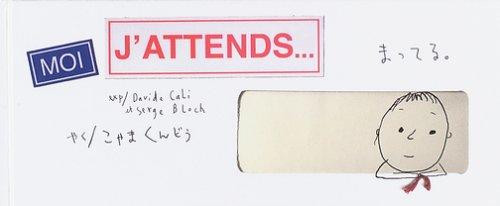 MOI
J'ATTENDS...
まってる。
Davide Cali
et Serge Bloch
やく/こやま くんどう